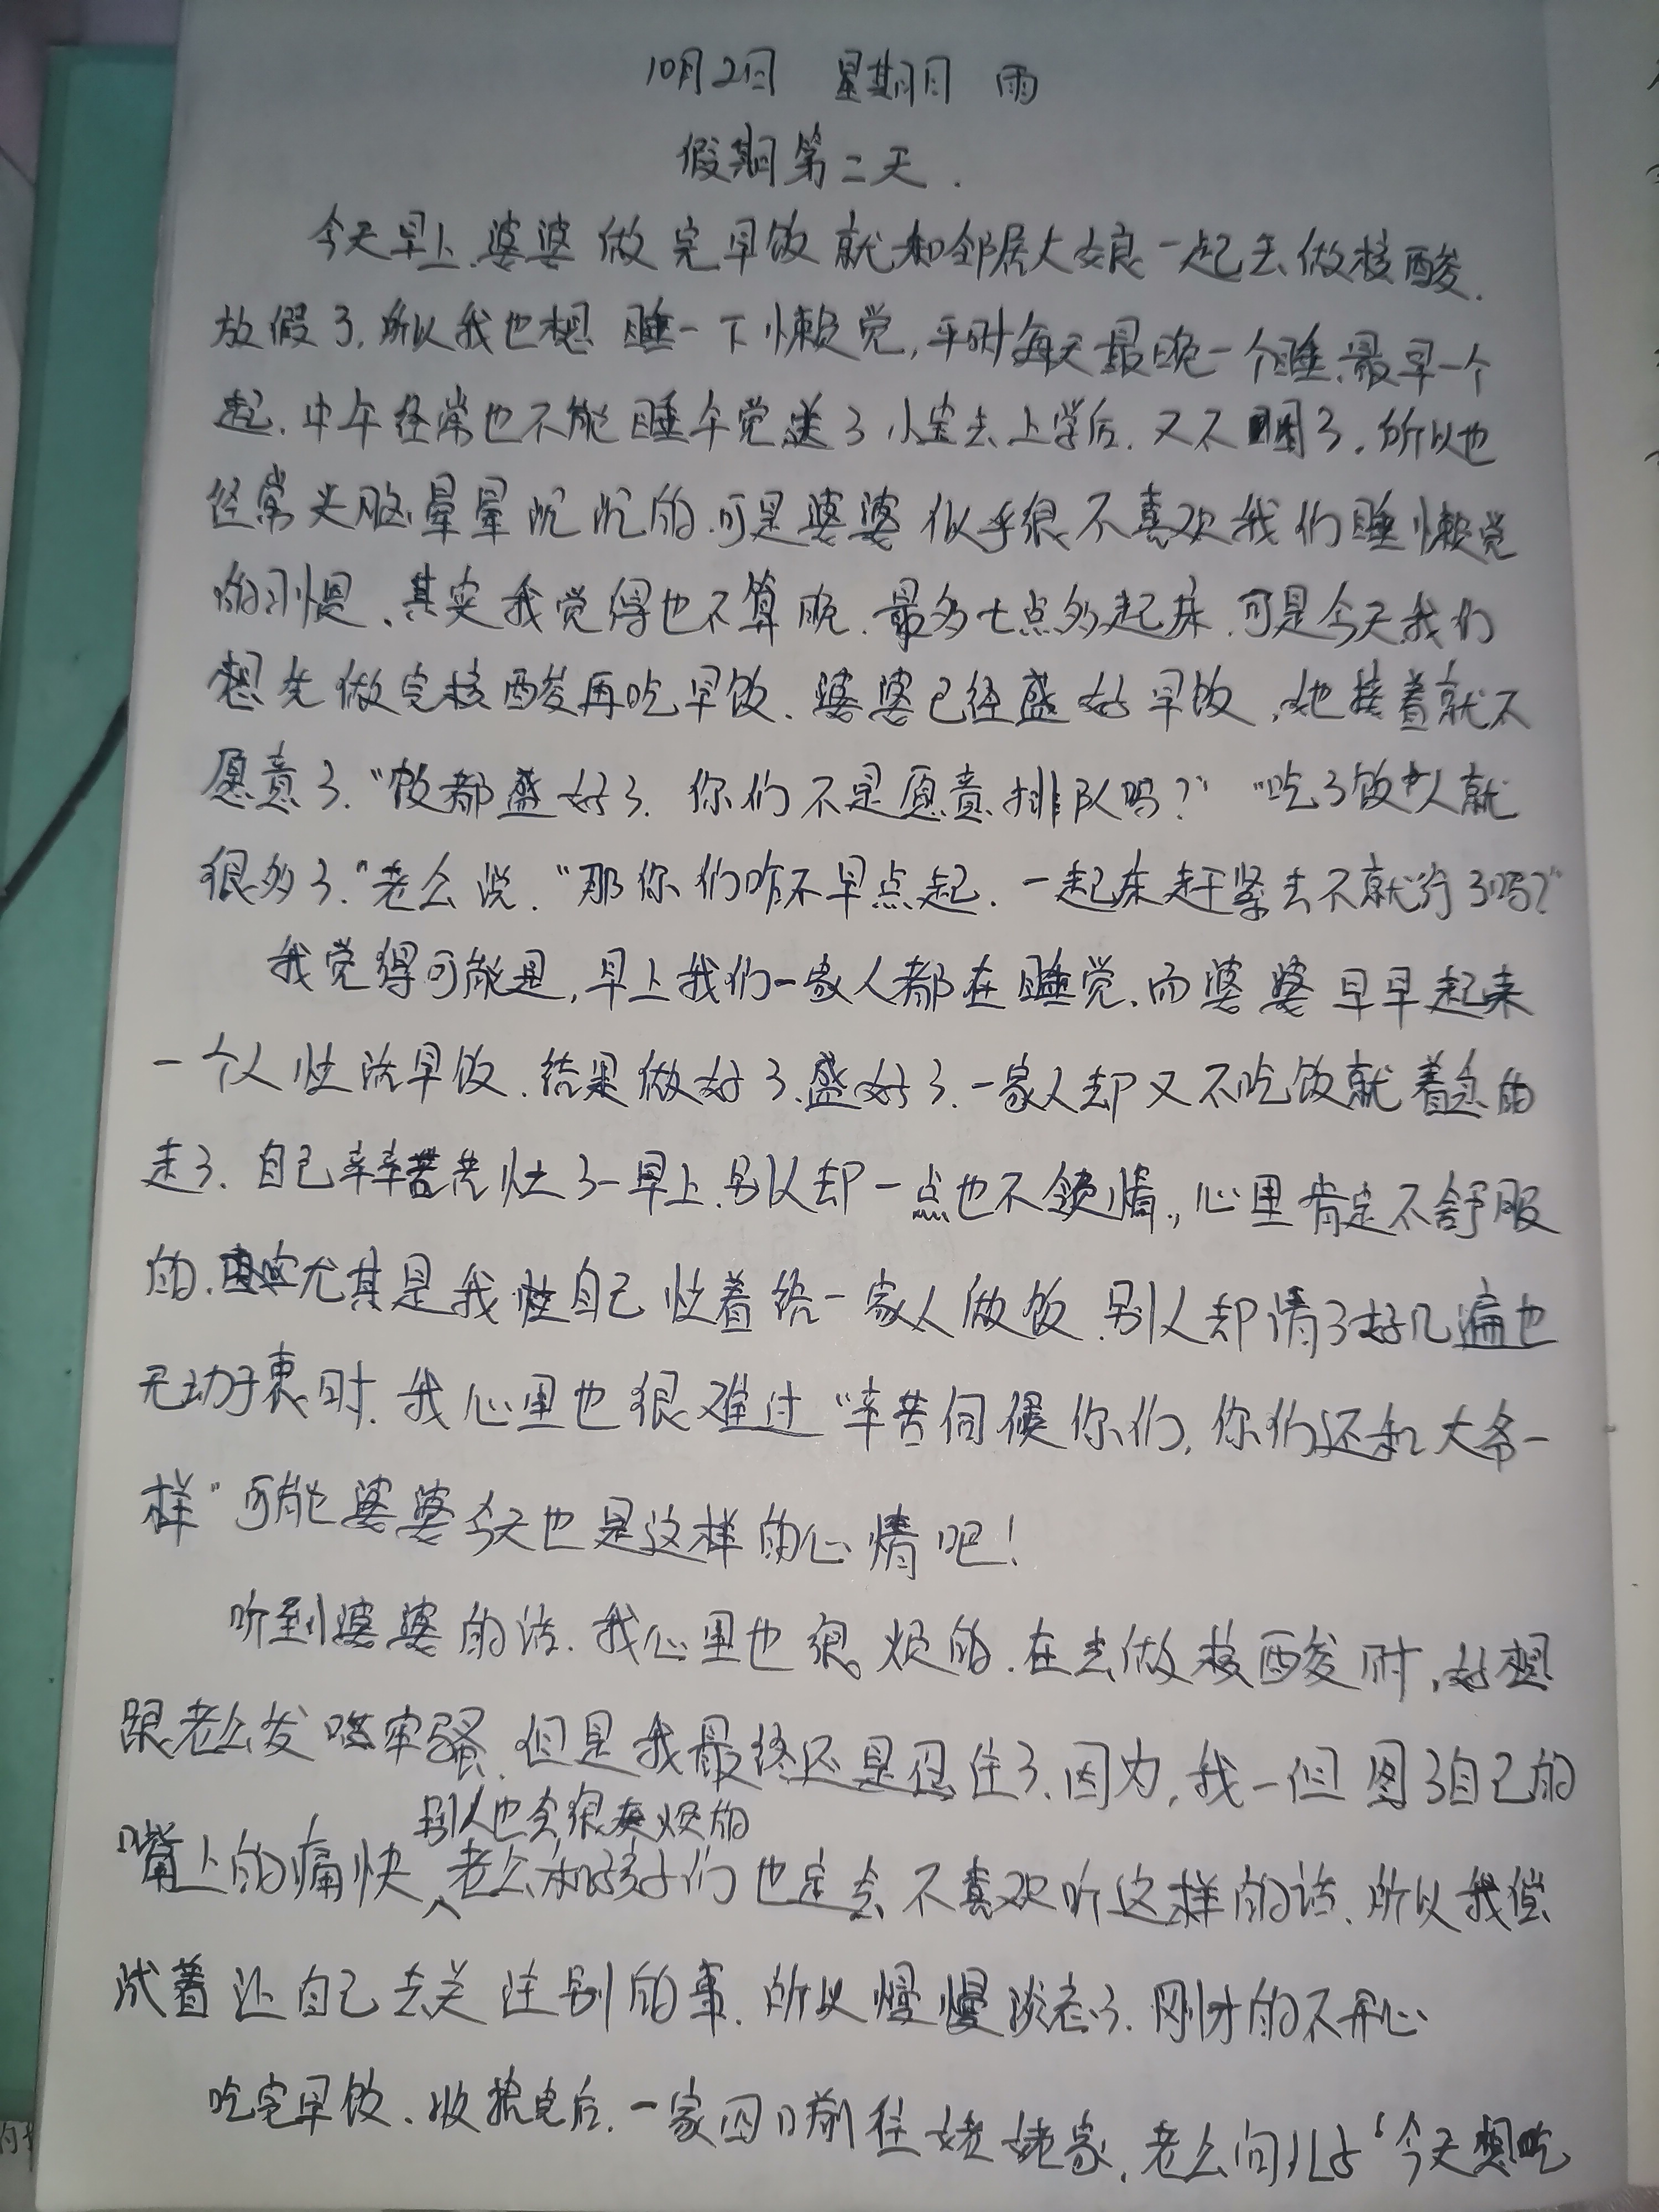 10月2日 星期日 雨
假期第二天.
今天早上.婆婆做完早饭就和邻居大娘一起去做核酸.
放假了.所以我也想睡一下懒觉,平时每天最晚一个睡.最早一个
起.中午经常也不能睡午觉送了小宝去上学后.又不困了.所以也
经常头脑晕晕沉沉的.可是婆婆似乎很不喜欢我们睡懒觉
的习惯、其实我觉得也不算晚.最多七点多起床.可是今天我们
想先做完核酸再吃早饭.婆婆已经盛好早饭,她接着就不
愿意了."饭都盛好了.你们不是愿意排队吗?""吃了饭人就
很多了."老公说."那你们咋不早点起.一起床赶紧去不就行了吗?"
我觉得可能是,早上我们一家人都在睡觉.而婆婆早早起来
一个人忙活早饭.结果做好了、盛好了.一家人却又不吃饭就着急的
走了.自己辛辛苦苦忙了一早上.别人却一点也不领情.,心里肯定不舒服
的.尤其是我自己忙着给一家人做饭.别人却请了好几遍也
无动于衷时.我心里也很难过"辛苦伺候你们,你们还和大爷一
样"可能婆婆今天也是这样的心情吧!
听到婆婆的话.我心里也很烦的.在去做核酸时,好想
跟老公发牢骚.但是我最终还是忍住了.因为,我一但图了自己的
嘴上的痛快、别人也会很烦的
老公和孩子们也定会不喜欢听这样的话.所以我偿
试着让自己去关注别的事.所以慢慢淡忘了.刚才的不开心
吃完早饭、收拾完后.一家四口前往姥姥家.老公问儿子"今天想吃